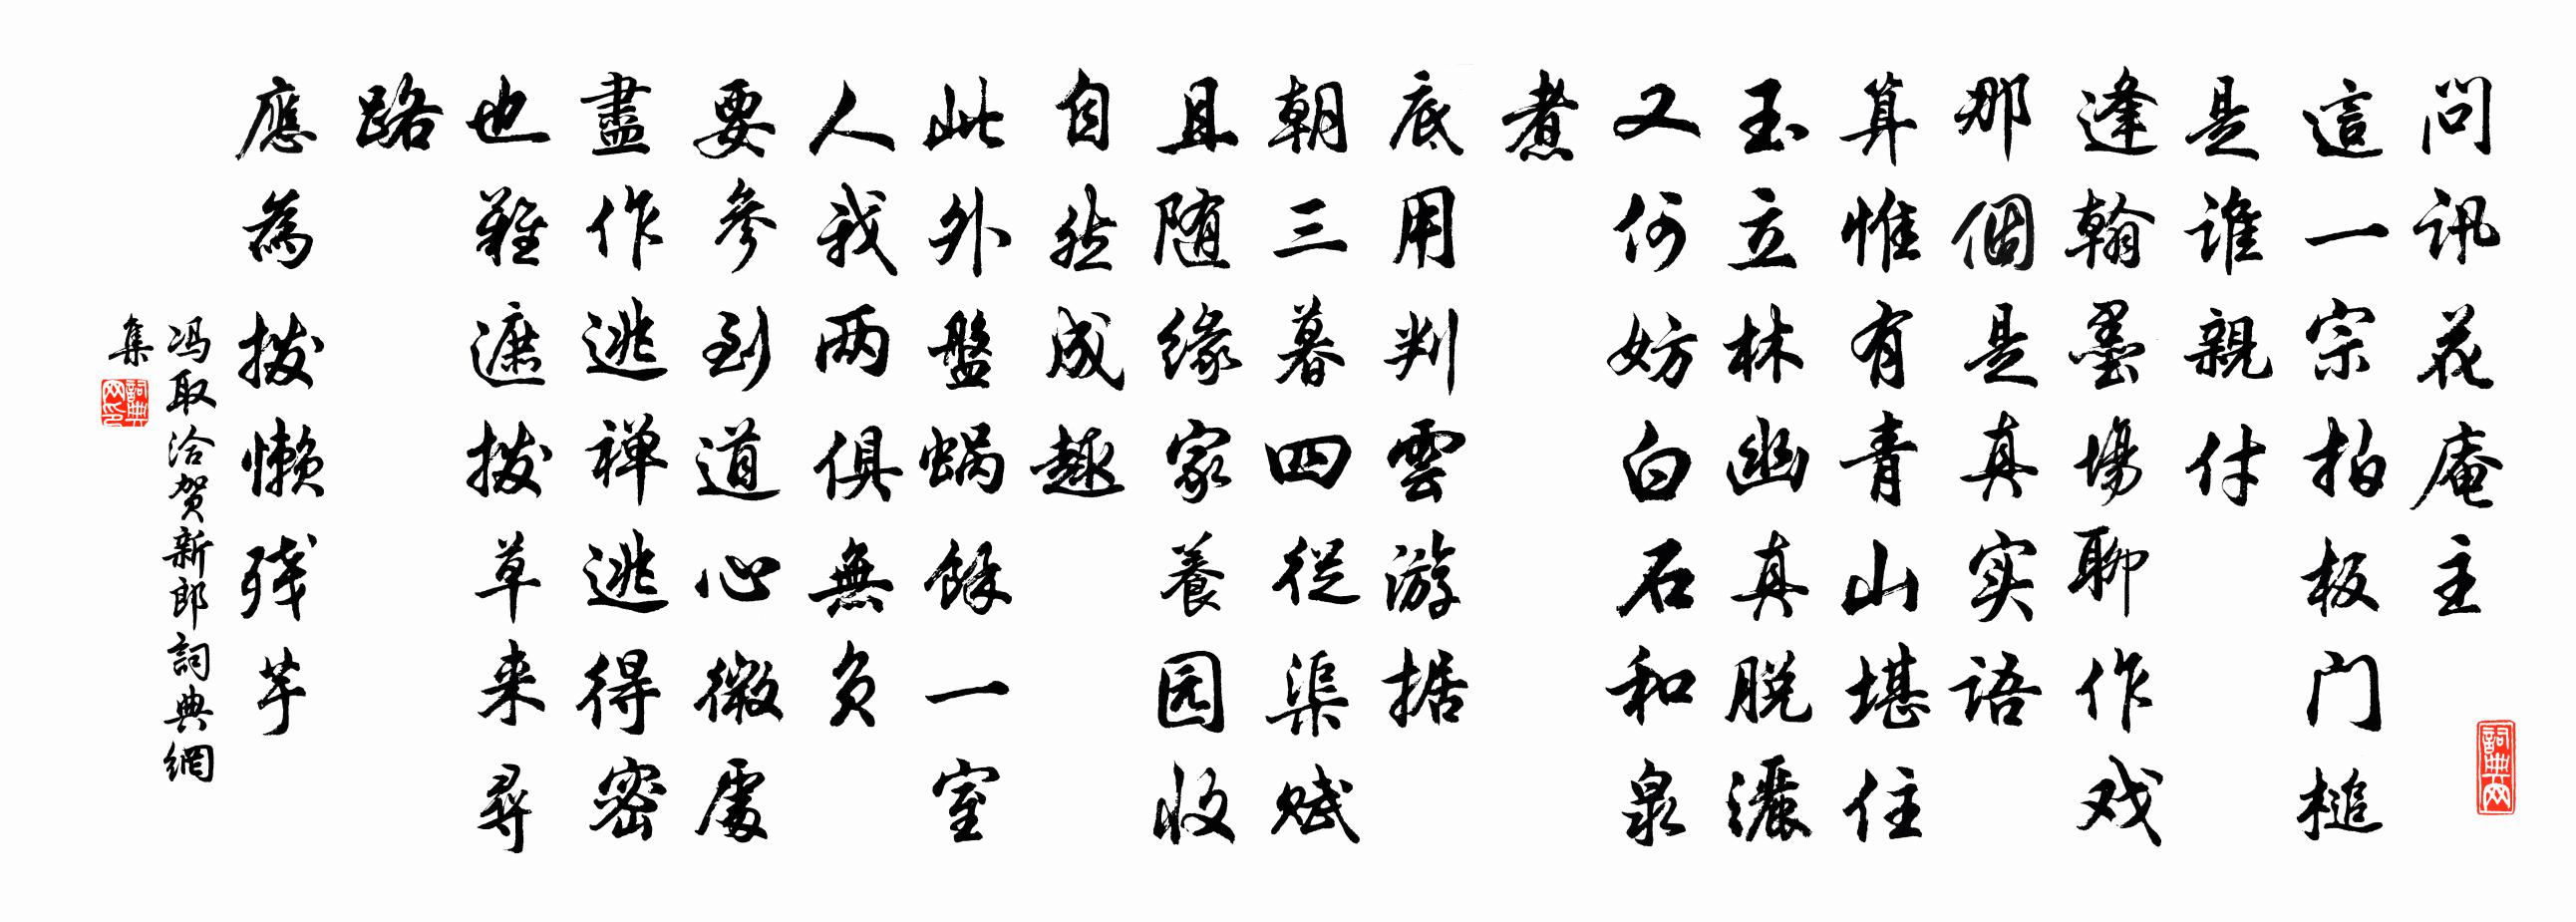 問讯花庵主
這一宗拍板门槌
是谁親付
逢翰墨場聊作戏
那個是真实语
算惟有青山堪住
玉立林幽真脱灑
又何妨白石和泉
煮
底用判雲游据
朝三暮四従渠赋
且随缘家養园收
自然成趣
此外盤蜗餘一室
人我两俱無负
要参到道心微處
盡作逃禅逃得密
也难遮拨草来尋
路
應為拨懒残芋
冯取洽贺新郎詞典網
集
詞典网印
詞典网